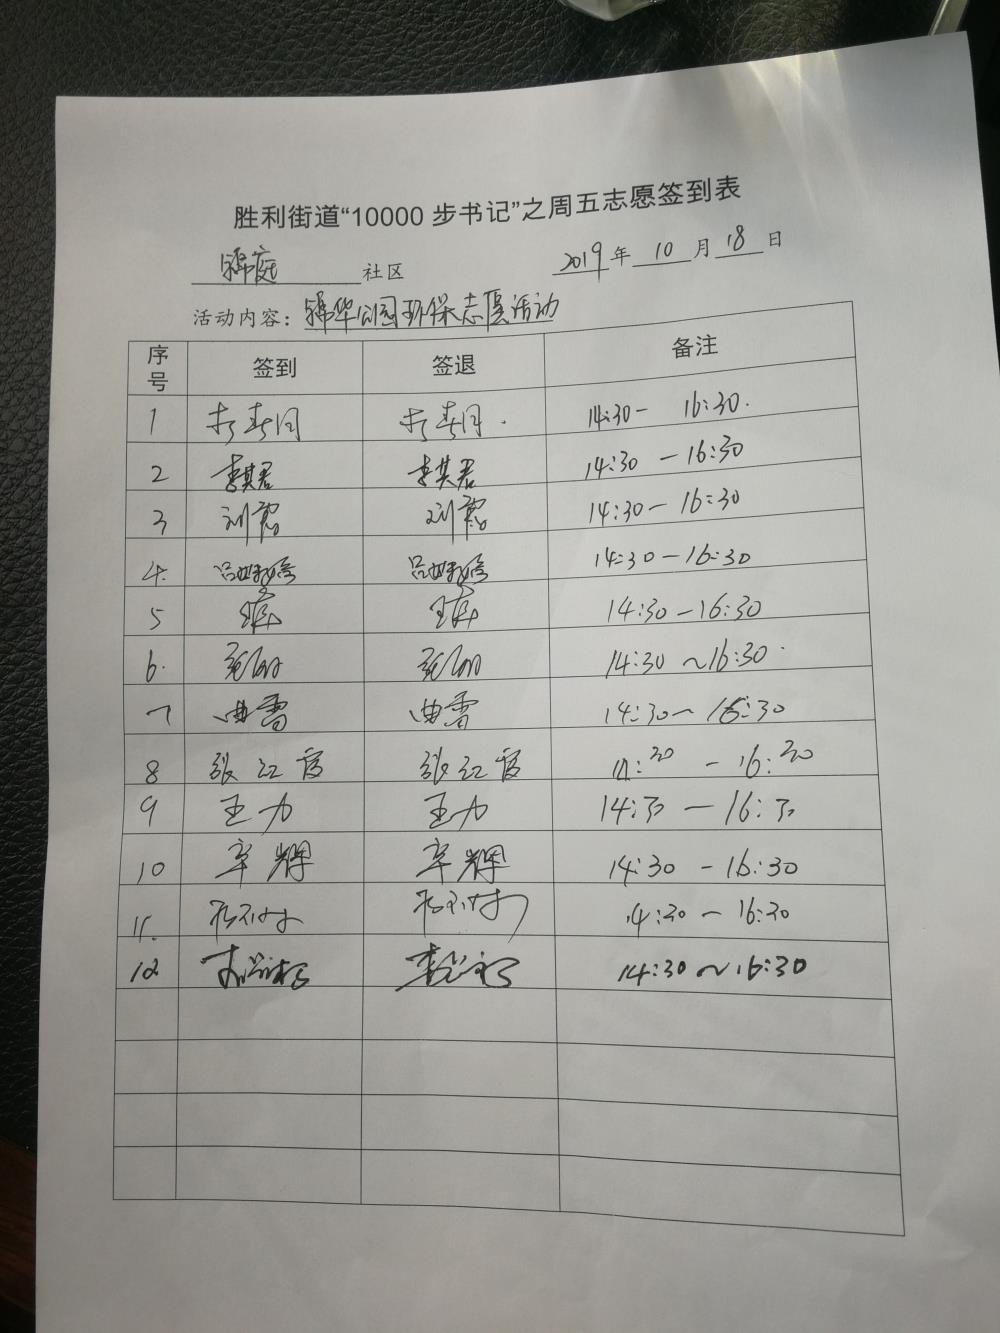 胜利街道“10000 步书记”之周五志愿签到表
锦庭 社区 2019 年 10 月 18 日
活动内容：锦华公园环保志愿活动
序号 签到 签退 备注
1 14:30- 16:30.
2 李其君 李其君 14:30 -16:30
3 刘霞 刘霞 14:30- 16:30
4. 14:30-16:30
5 14:30-16:30
6. 14:30~16:30.
7 曲雪 曲雪 14:30~ 16:30
8 张红霞 张红霞 14:30 - 16:30
9 王力 王力 14:30 - 16:30
10 辛辉 辛辉 14:30 -16:30
11. 14:30-16:30
12 14:30~16:30